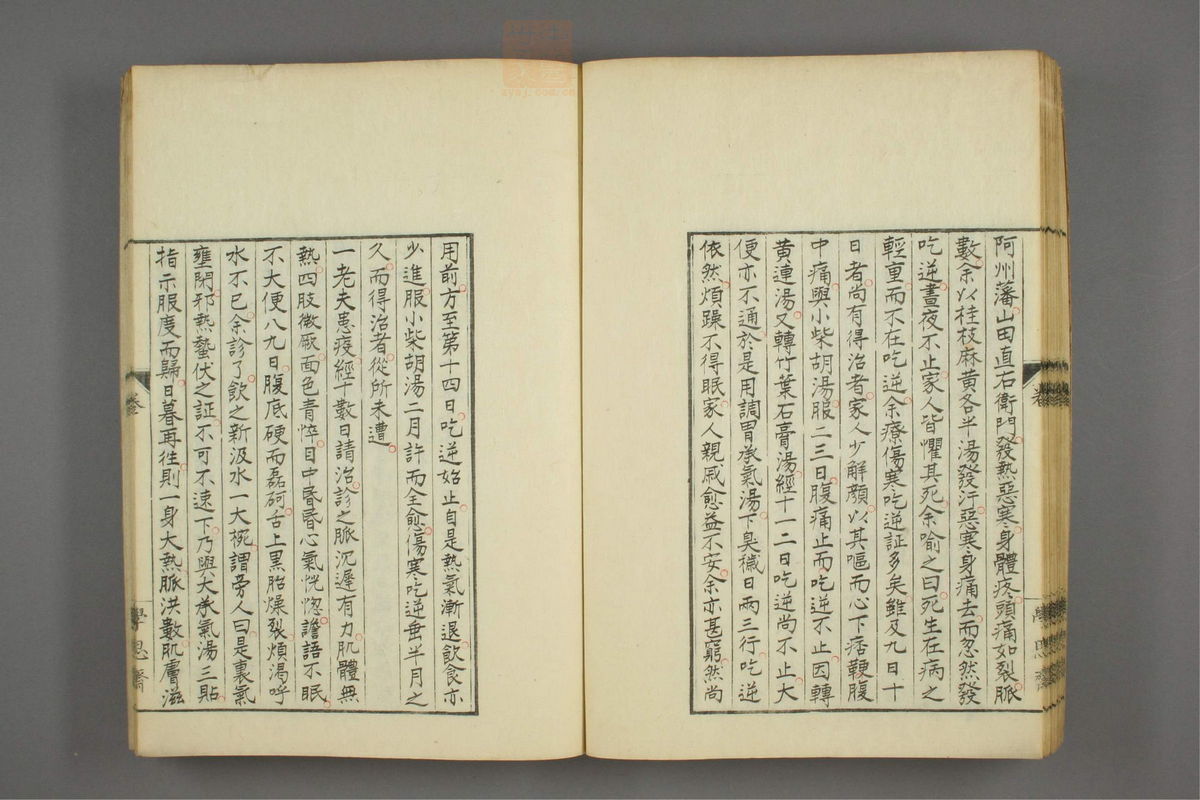 阿州藩山田直右衛門發熱惡寒身體疼頭痛如裂脈
數余以桂枝麻黃各半湯發汗惡寒身痛去而忽然發
吃逆晝夜不止家人皆懼其死余喻之曰死生在病之
輕重而不在吃逆余療傷寒吃逆証多矣雖及九日十
日者尚有得治者家人少解顏以其嘔而心下痞鞕腹
中痛與小柴胡湯服二三日腹痛止而吃逆不止因轉
黃連湯又轉竹葉石膏湯經十一二日吃逆尚不止大
便亦不通於是用調胃承氣湯下臭穢日兩三行吃逆
依然煩躁不得眠家人親戚愈益不安余亦甚窮然尚
用前方至第十四日吃逆始止自是熱氣漸退飲食亦
少進服小柴胡湯二月許而全愈傷寒吃逆垂半月之
久而得治者從所未遭
一老夫患疫經十數日請治診之脈沉遲有力肌體無
熱四肢微厥面色青悴日中昏昏心氣恍惚譫語不眠
不大便八九日腹底硬而磊砢舌上黑胎燥裂煩渴呼
水不已余診了飲之新汲水一大椀謂旁人曰是裏氣
壅閉邪熱蟄伏之証不可不速下乃與大承氣湯三貼
指示服度而歸日暮再往則一身大熱脈洪數肌膚滋
學思齋